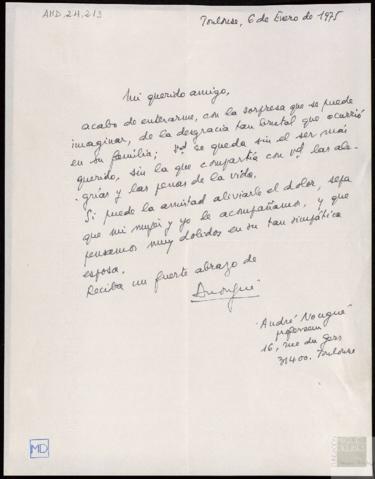 AMD.24.213
Toulouse, 6 de Enero de 1975
Mi querido amigo,
acabo de enterarme, con la sorpresa que se puede
imaginar, de la desgracia tan brutal que ocurrió
en su familia; Vd se queda sin el ser más
querido, sin la que compartía con Vd las ale-
grías y las penas de la vida.
Si puede la amistad aliviarle el dolor, sepa
que mi mujer y yo le acompañamos, y que
pensamos muy dolidos en su tan simpática
esposa.
Reciba un fuerte abrazo de
André Nougué
professeur
16, rue du Gers
31400. Toulouse
MD